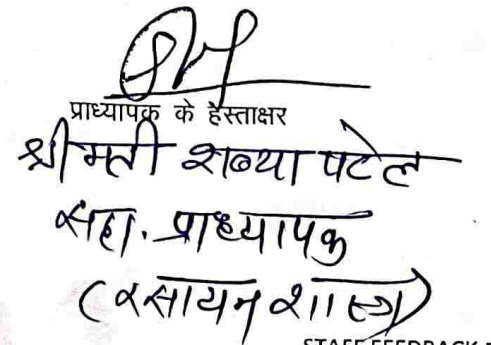 प्राध्यापक के हस्ताक्षर
श्रीमती शब्या पटेल
सहा. प्राध्यापक
(रसायन शास्त्र)
STAFF FEEDBACK